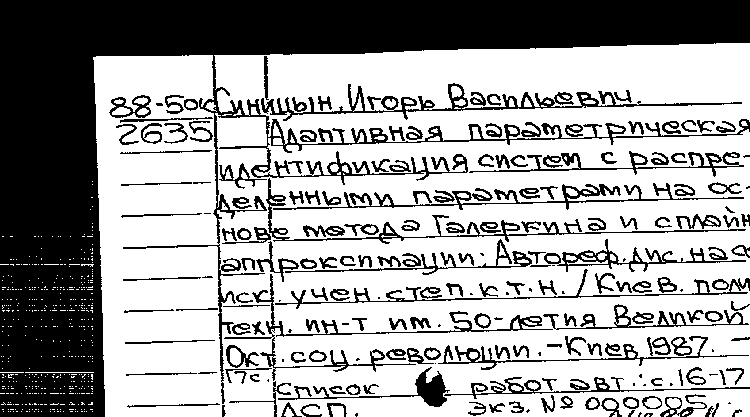 88-50к Синицын, Игорь Васильевич.
2635 Адаптивная параметрическая
идентификация систем с распре-
деленными параметрами на ос-
нове метода Галеркина и сплайн
аппроксимации: Автореф. дис. на со
иск. учен. степ. к.т.н. / Киев. поли
техн. ин-т им. 50-летия Великой
Окт. соц. революции. - Киев, 1987. -
17с.
список работ авт.: с. 16-17
ДСП. экз. № 000005